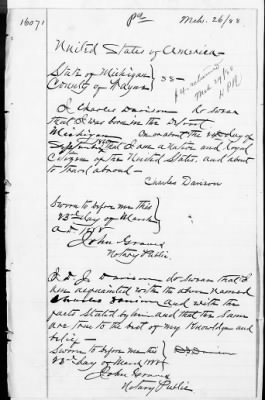 16071
pd
Mch. 26/88
United States of America
State of Michigan
County of Wayne } SS-
I Charles Davison do swear
that I was born in the Detroit
Michigan on or about the day of
that I am a native and loyal
Citizen of the United States, and about
to travel abroad -
Charles Davison
Sworn to before me this
23rd day of March
A.D. 1888
John Graves
Notary Public.
I. D. J. Davison do swear that I
am acquainted with the above named
Charles Davison and with the
facts stated by him and that the same
are true to the best of my knowledge and
belief -
Sworn to before me this
23rd day of March 1888
John Graves
Notary Public